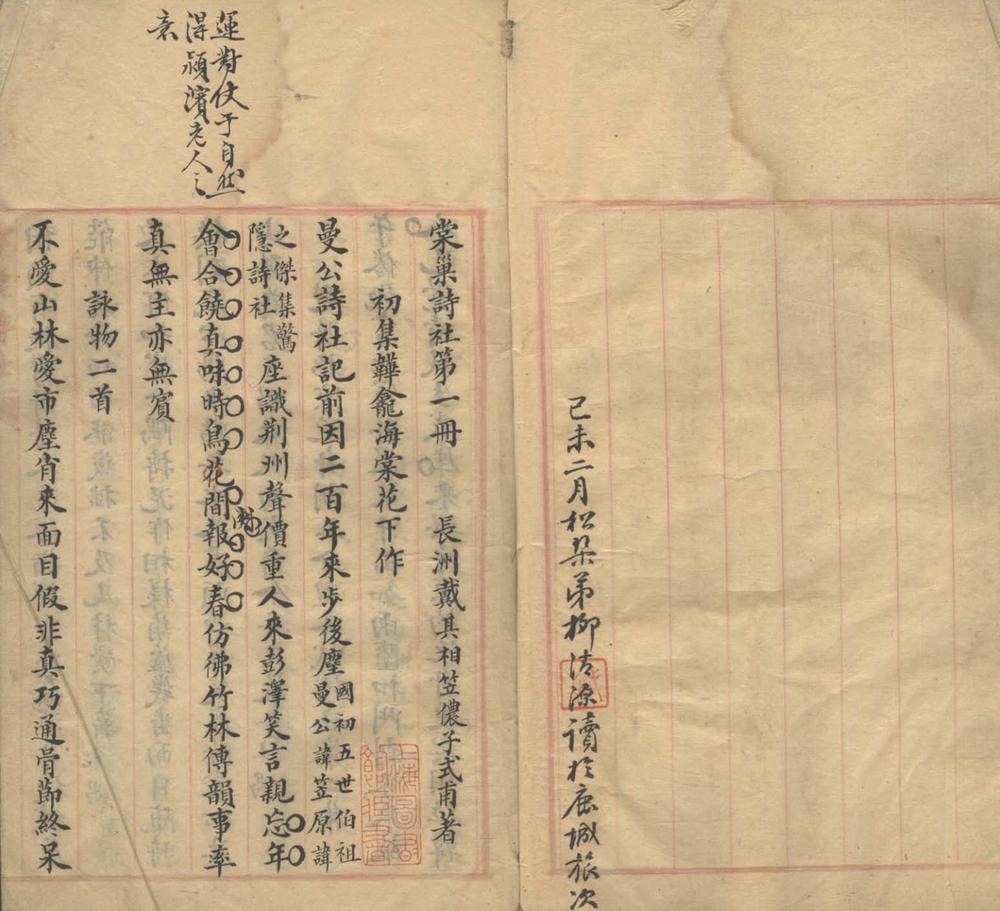 己未二月松琹弟柳清源讀於鹿城旅次
運對仗于自然
得潁濱老人之
意
棠巢詩社第一冊　長洲戴其相笠儂子式甫著
初集韡龕海棠花下作
曼公詩社記前因二百年來步後塵國初五世伯祖
曼公諱笠原諱
之傑集驚
隱詩社
座識荆州聲價重人來彭澤笑言親忘年
會合饒真味時鳥花間報好春仿彿竹林傳韻事率
真無主亦無賓
詠物二首
不愛山林愛市塵肖來面目假非真巧通骨節終呆
上海圖書
館藏書